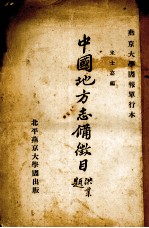 燕京大學圖報單行本
朱士嘉編
中國地方志備徵目
洪業
題
北平燕京大學圖出版